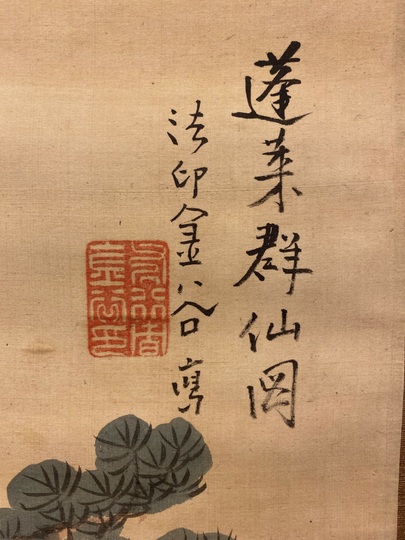 蓬莱群仙図
法印金谷寫